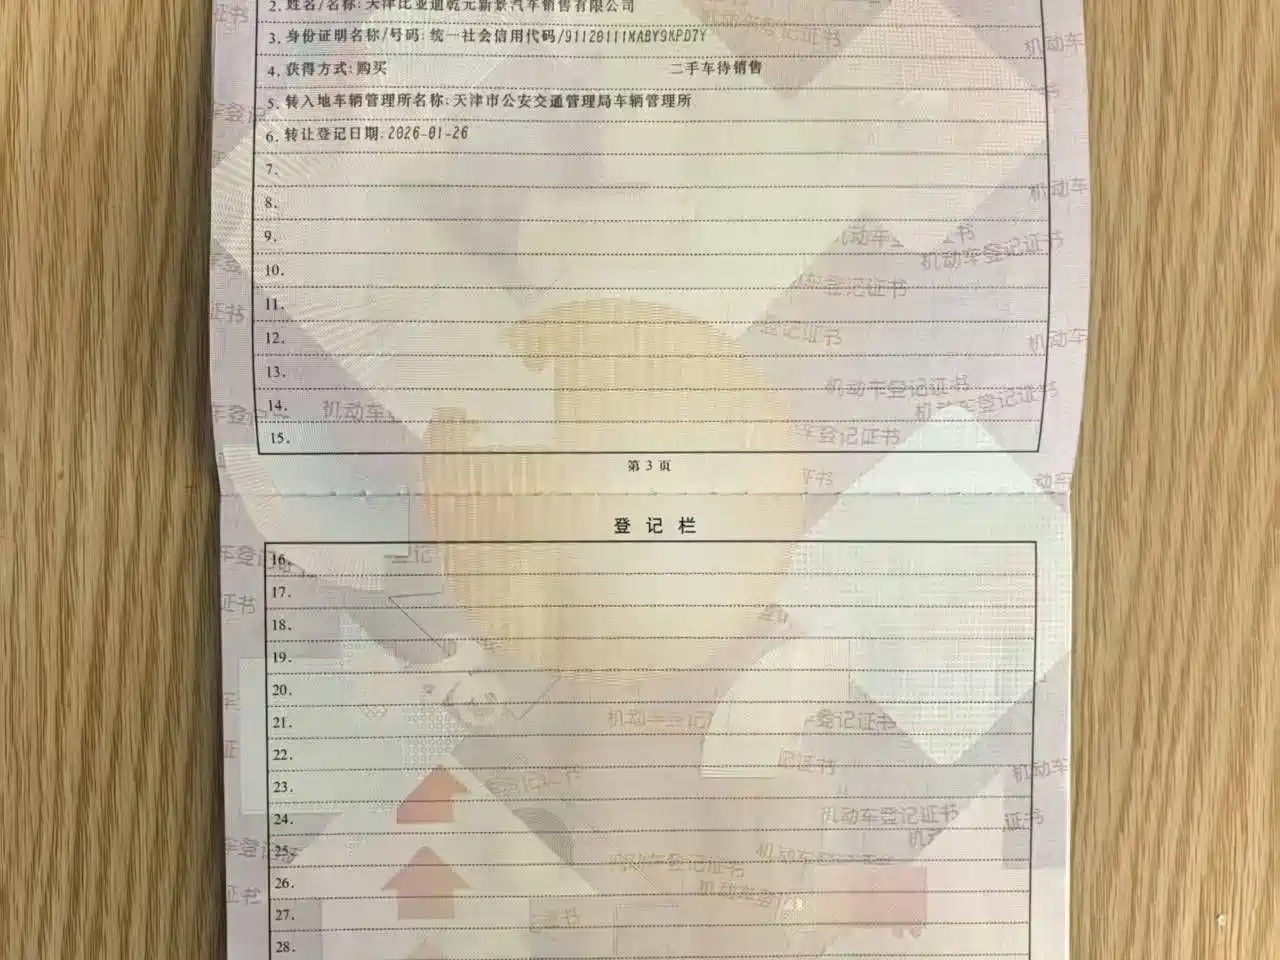 2. 姓名/名称: 天津比亚迪乾元新景汽车销售有限公司
3. 身份证明名称/号码: 统一社会信用代码/91120111MABY9KPD7Y
4. 获得方式: 购买 二手车待销售
5. 转入地车辆管理所名称: 天津市公安交通管理局车辆管理所
6. 转让登记日期: 2026-01-26
7.
8.
9.
10.
11.
12.
13.
14.
15.
第 3 页
登 记 栏
16.
17.
18.
19.
20.
21.
22.
23.
24.
25.
26.
27.
28.
机动车登记证书